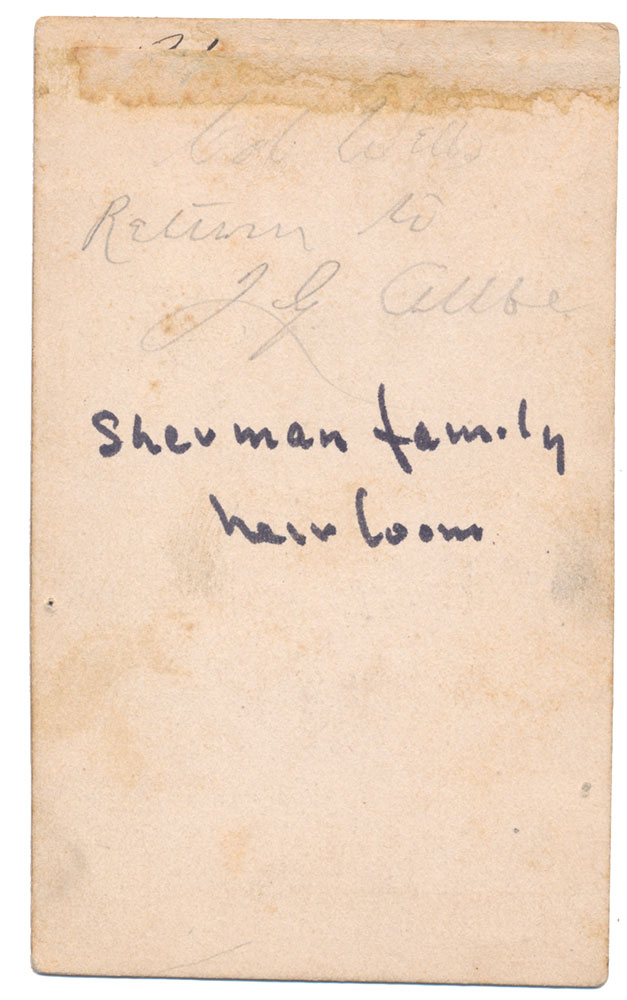 Col Wells
Return to
J G Allbe
Sherman family
heirloom